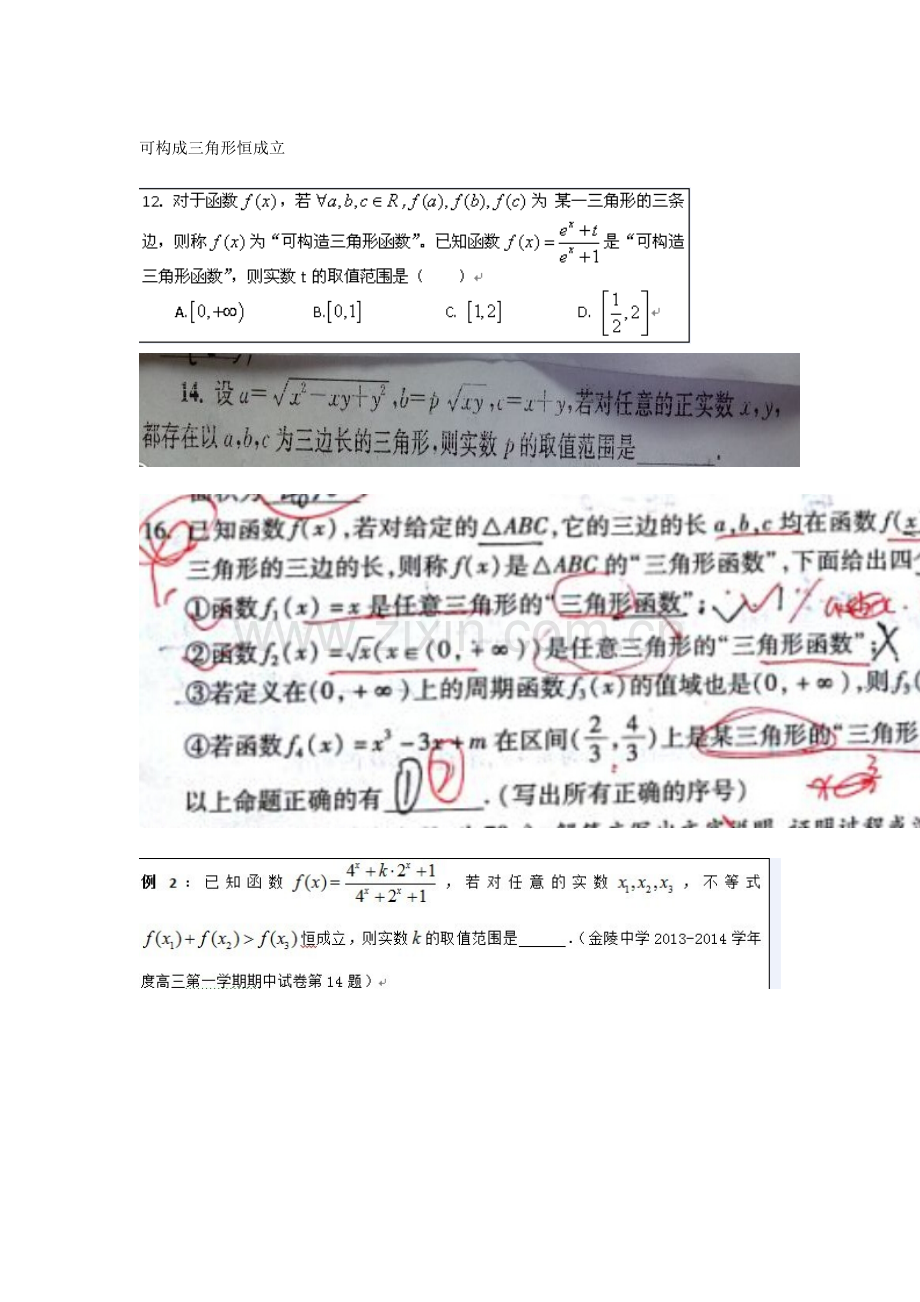 可构成三角形恒成立
12. 对于函数 f(x)，若 ∀a,b,c∈R, f(a), f(b), f(c) 为 某一三角形的三条
边，则称 f(x) 为“可构造三角形函数”。已知函数 f(x)=\frac{e^x+t}{e^x+1} 是“可构造
三角形函数”，则实数 t 的取值范围是（　　）
A.[0,+∞) B.[0,1] C. [1,2] D. [\frac{1}{2},2]
14. 设 a=\sqrt{x^2-xy+y^2},b=p\sqrt{xy},c=x+y,若对任意的正实数 x,y,
都存在以 a,b,c 为三边长的三角形,则实数 p 的取值范围是______.
16. 已知函数 f(x),若对给定的△ABC,它的三边的长 a,b,c 均在函数 f(x
三角形的三边的长,则称 f(x)是△ABC 的“三角形函数”,下面给出四个
①函数 f₁(x)=x 是任意三角形的“三角形函数”;
②函数 f₂(x)=√x(x∈(0,+∞))是任意三角形的“三角形函数”;
③若定义在(0,+∞)上的周期函数 f₃(x)的值域也是(0,+∞),则 f₃(
④若函数 f₄(x)=x³-3x+m 在区间(\frac{2}{3},\frac{4}{3})上是某三角形的“三角形
以上命题正确的有 ① ② .(写出所有正确的序号)
www.zixin.com.cn
例 2：已知函数 f(x)=\frac{4^x+k·2^x+1}{4^x+2^x+1}，若对任意的实数 x₁,x₂,x₃，不等式
f(x₁)+f(x₂)>f(x₃)恒成立，则实数 k 的取值范围是______.(金陵中学 2013-2014 学年
度高三第一学期期中试卷第 14 题)